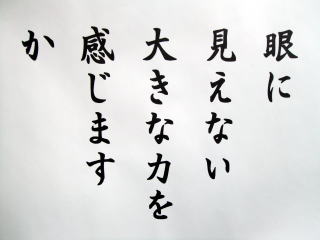 眼に
見えない
大きな力を
感じます
か